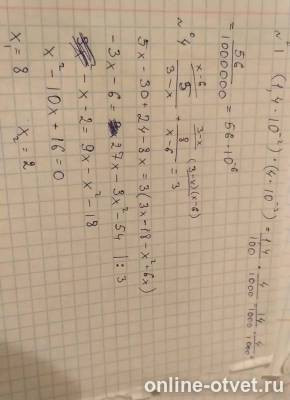 №1 (1,4·10⁻²)·(4·10⁻³) = 14/100 · 4/1000 = 14/1000 · 4/1000 =
= 56/1000000 = 56·10⁶
№4 x-6/ 5/3-x + 3-x/ 8/x-6 = 3 (3-x)(x-6)
5x-30+24-8x=3(3x-18-x²+6x)
-3x-6=27x-3x²-54 |:3
-x-2=9x-x²-18
x²-10x+16=0
x₁=8 x₂=2
online-otvet.ru